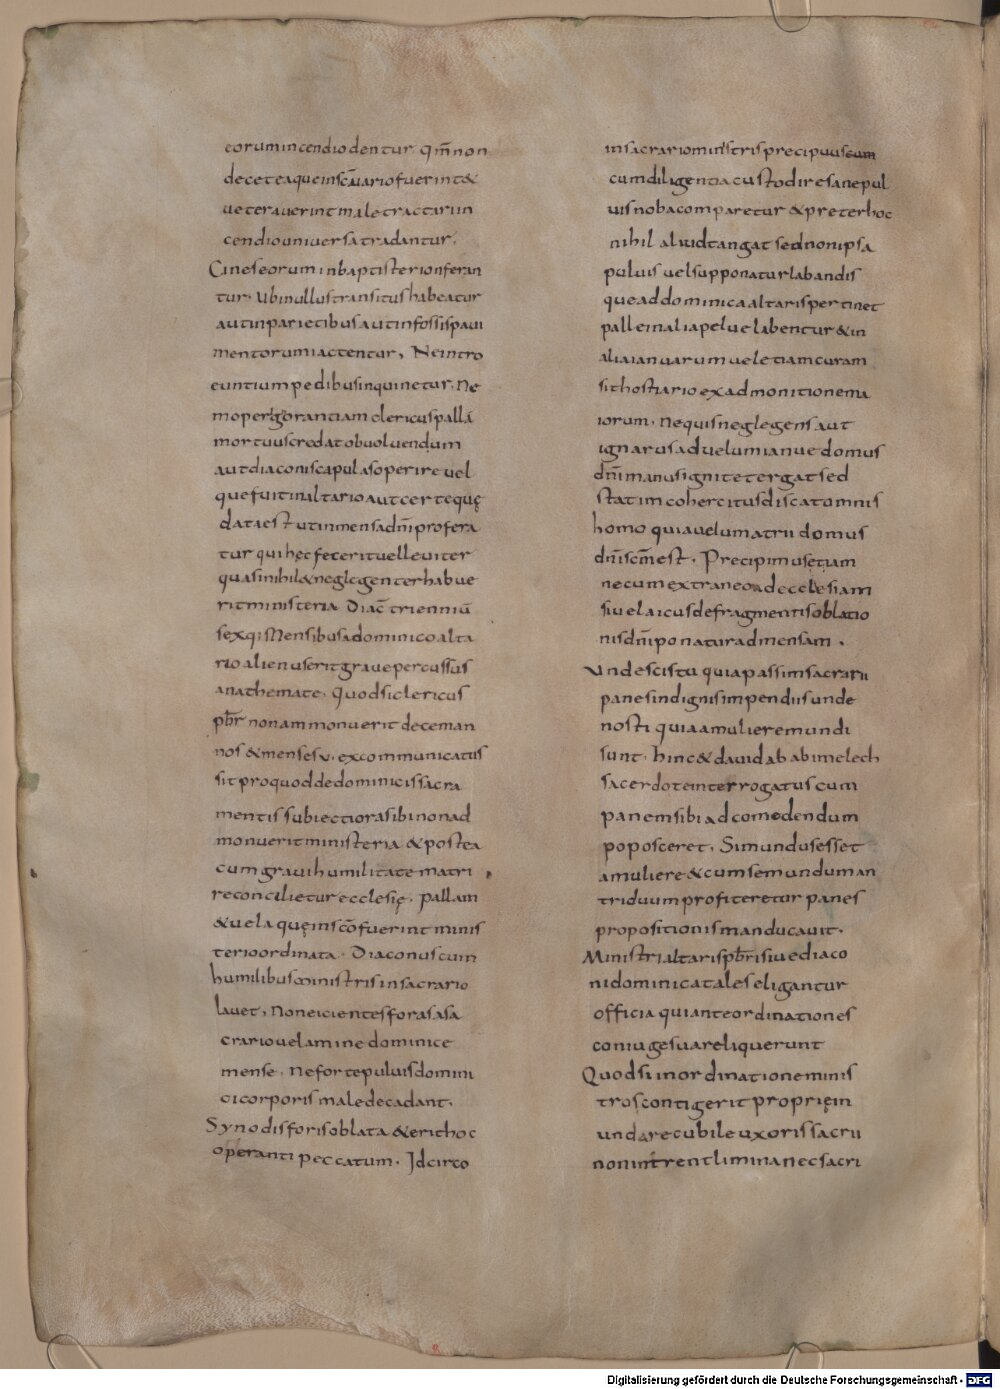 eorum incendio dentur. qm̄ non
decet ea que in sc̄uario fuerint &
ueterauerint male tractari in
cendio uniuersa tradantur.
Cineseorum in baptisterio nferan
tur. Ubi nullus transitus habeatur
aut in parietibus aut in fossis paui
mentorum iactentur, Ne intro
euntium pedibus inquinetur. Ne
mo per ignorantiam clericus pallā
mortuus credat obuoluendum
aut diaconi scapulas operire uel
que fuit in altario aut certe quę
data est ut in mensa dn̄i profera
tur qui hęc fecerit uel leuiter
quasi nihil & neglegenter habue
rit ministeria Diac̄ trienniū
sex q; Mensibus a dominico alta
rio alienus erit graue percussus
anathemate. Quod si clericus
pb̄r non ammonuerit decem an
nos & menses v. excommunicatus
sit pro quod de dominicis sacra
mentis subiectiora sibi non ad
monuerit ministeria & postea
cum graui humilitate matri
reconcilietur ecclesię. pallam
& uela quę in sc̄o fuerint minis
terio ordinata. Diaconus cum
humilibus ministris in sacrario
lauet, Non eicientes foras a sa
crario uelamine dominice
mense. Ne forte puluis domini
ci corporis male decadant.
Synodis foris oblata & erit hoc
operanti peccatum. Idcirco
in sacrario ministris precipuus eum
cum diligentia custodire sane pul
uis noba comparetur & preter hoc
nihil aliud tangat sed non ipsa
puluis uel supponatur labandis
que ad dominica altaris pertinet
palle in alia pelue labentur & in
alia ianuarum uel etiam curam
sit hostiario ex admonitione ma
iorum. Nequis neglegens aut
ignarus ad uelum ianue domus
dn̄i manus ignite tergat sed
statim cohercitus discat omnis
homo quia uelum atrii domus
dn̄i sc̄m est. Precipimus etiam
necum extraneo ad ecclesiam
siue laicus de fragmentis oblatio
nis dn̄i ponatur ad mensam.
Unde scis tu quia passim sacrarii
panes indignis impendiis unde
nosti quia a muliere mundi
sunt. hinc & dauid ab abimelech
sacerdote interrogatus cum
panem sibi ad comedendum
poposceret. Si mundus esset
a muliere & cum se mundum an
triduum profiteretur panes
propositionis manducauit.
Ministri altaris pb̄ris iue diaco
ni dominicatales eligantur
officia qui ante ordinationes
coniuges suas reliquerunt
Quod si in ordinatione minis
tros contigerit proprię in
undare cubile uxoris sacrii
non intrent limina nec sacri
Digitalisierung gefördert durch die Deutsche Forschungsgemeinschaft - DFG